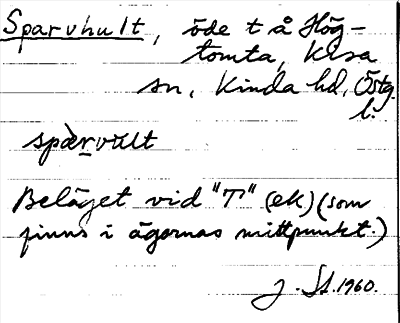 Sparvhult, öde t å Hög-
tomta, Kisa
sn, Kinda hd, Östg.
l.
spàrvult
Beläget vid "T" (ek) (som
finns i ägornas mittpunkt.)
J. St. 1960.